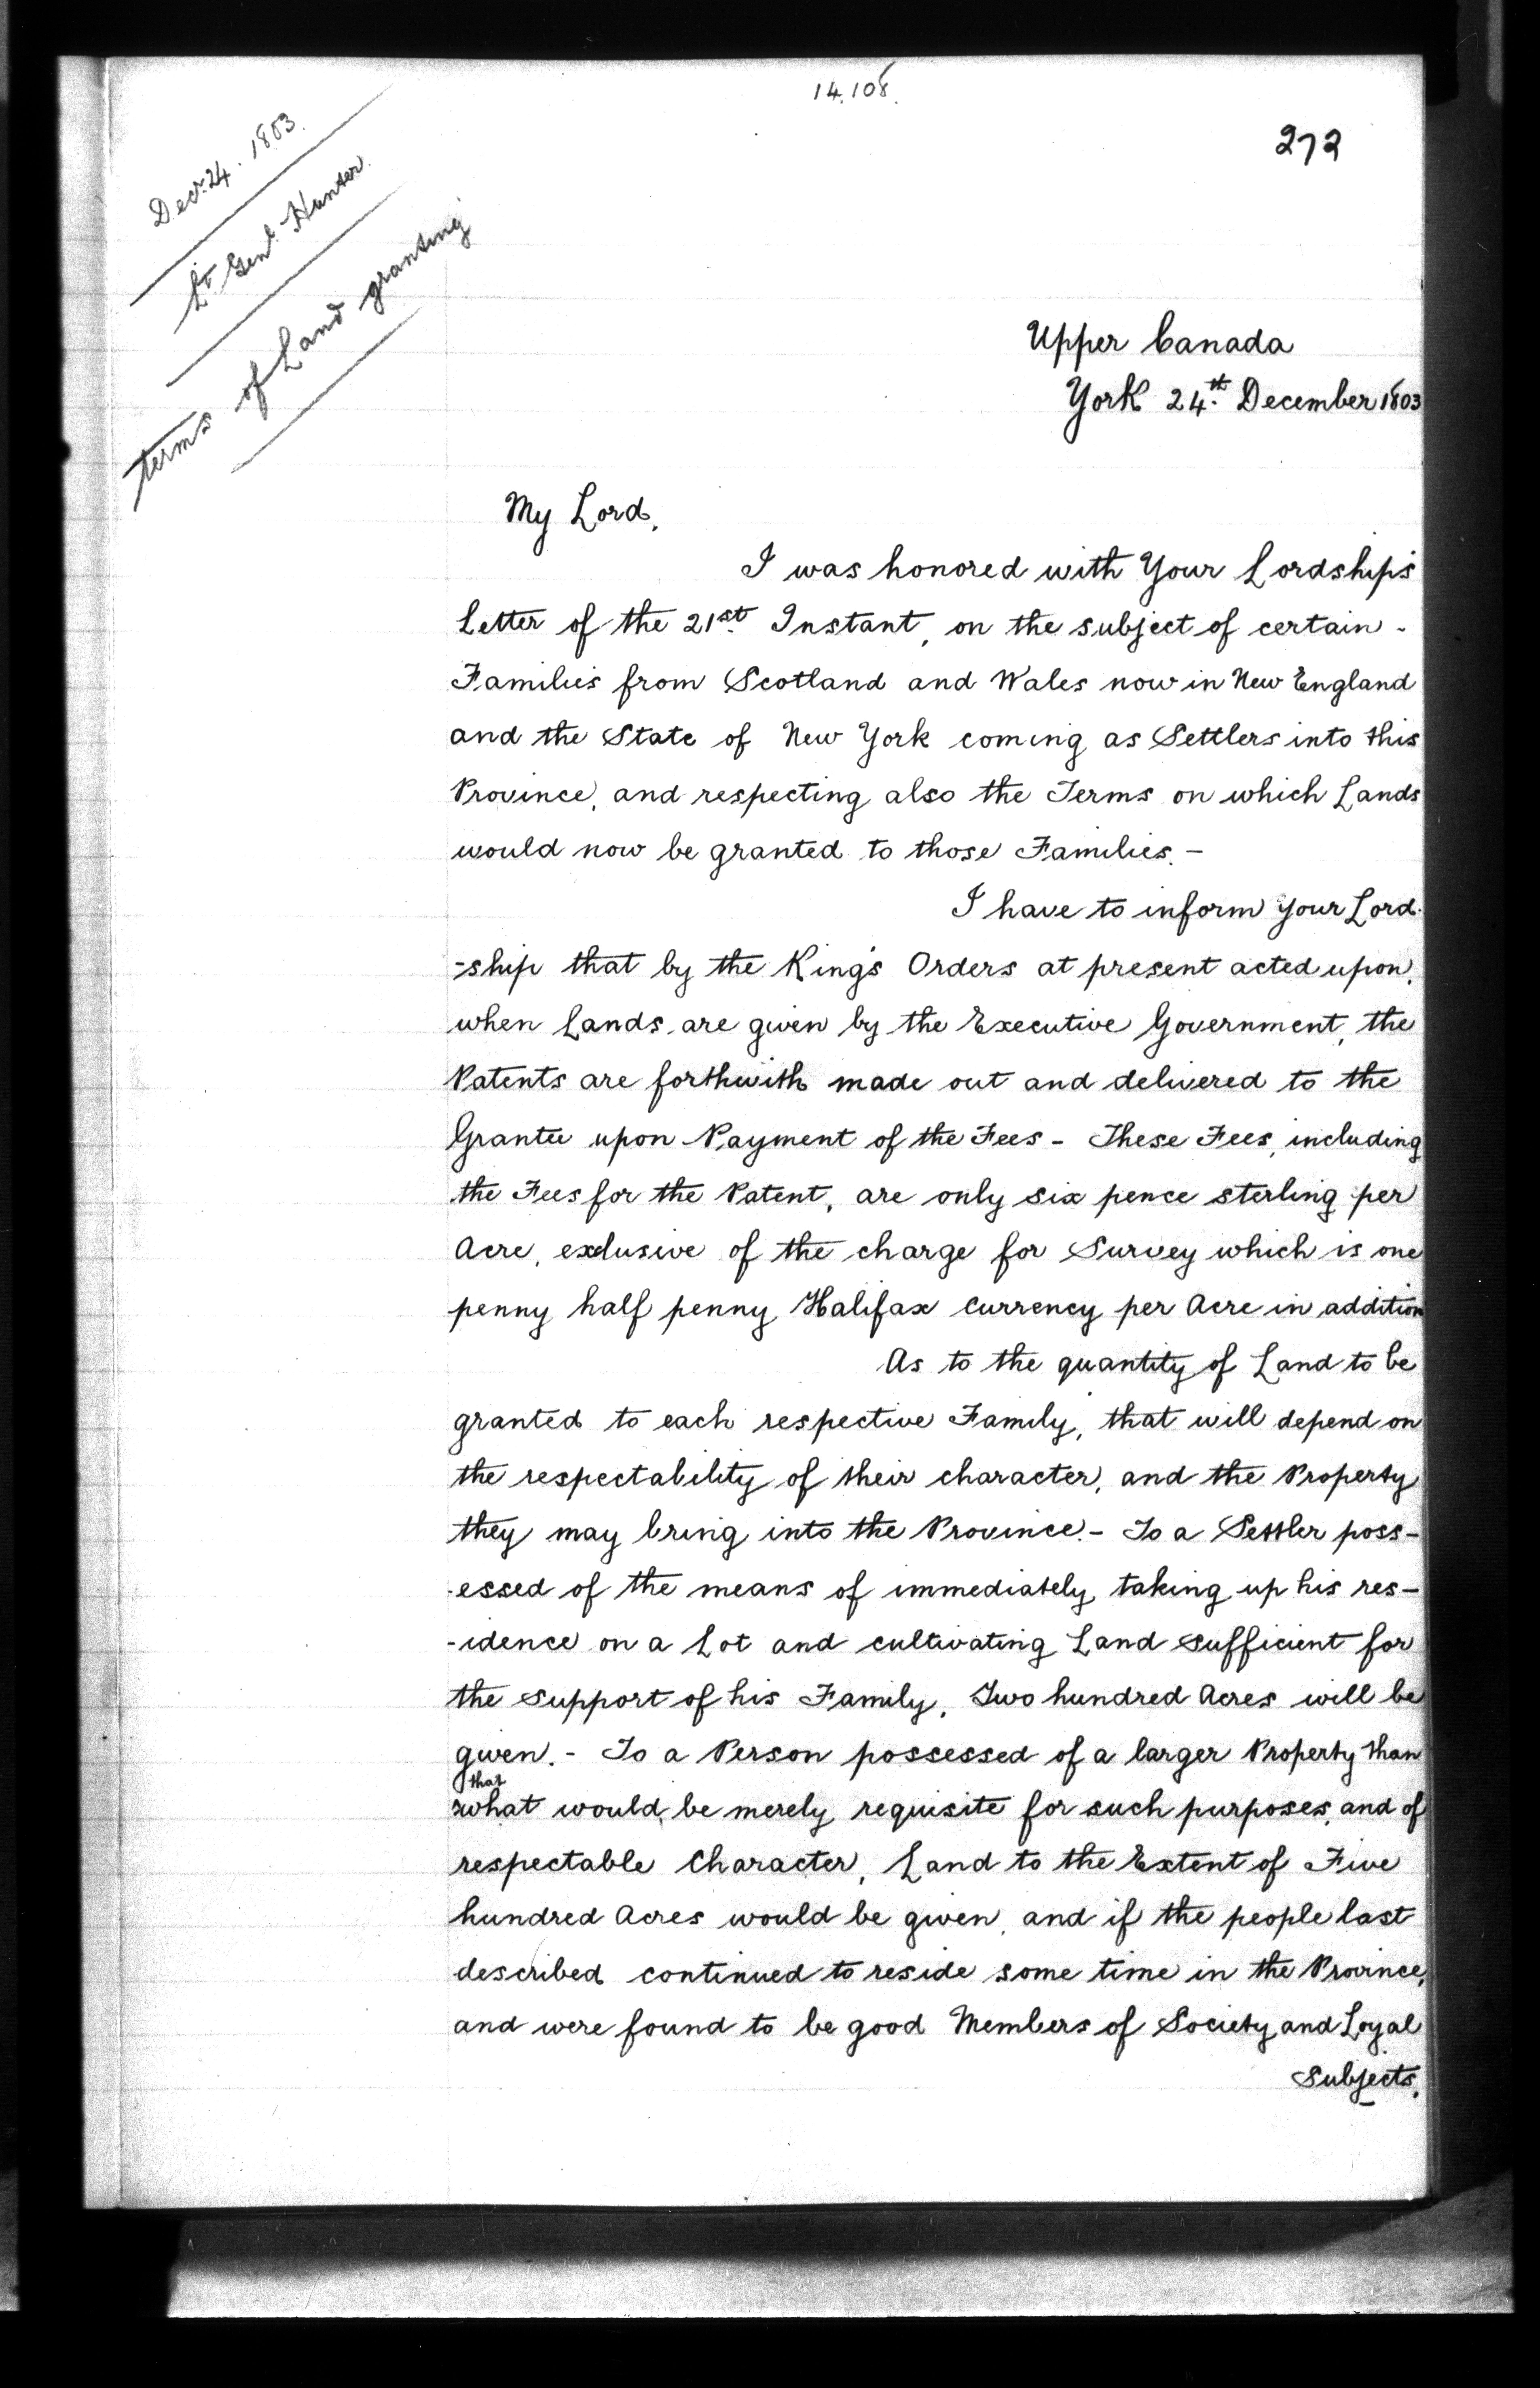 14.108.
272
Decr. 24. 1803.
Lt Genl. Hunter.
terms of Land granting
Upper Canada
York 24th. December 1803
My Lord,
I was honored with Your Lordship's
Letter of the 21st. Instant, on the subject of certain -
Families from Scotland and Wales now in New England
and the State of New York coming as Settlers into this
Province, and respecting also the Terms on which Lands
would now be granted to those Families. -
I have to inform your Lord-
-ship that by the King's Orders at present acted upon,
when Lands are given by the Executive Government, the
Patents are forthwith made out and delivered to the
Grantee upon Payment of the Fees - These Fees, including
the Fees for the Patent, are only six pence sterling per
Acre, exclusive of the charge for Survey which is one
penny half penny Halifax Currency per Acre in addition
As to the quantity of Land to be
granted to each respective Family, that will depend on
the respectability of their character, and the Property
they may bring into the Province. - To a Settler poss-
-essed of the means of immediately taking up his res-
-idence on a Lot and cultivating Land sufficient for
the support of his Family, Two hundred Acres will be
given. - To a Person possessed of a larger Property than
that
what would be merely requisite for such purposes, and of
respectable Character, Land to the Extent of Five
hundred Acres would be given, and if the people last
described continued to reside some time in the Province,
and were found to be good Members of Society and Loyal
Subjects,